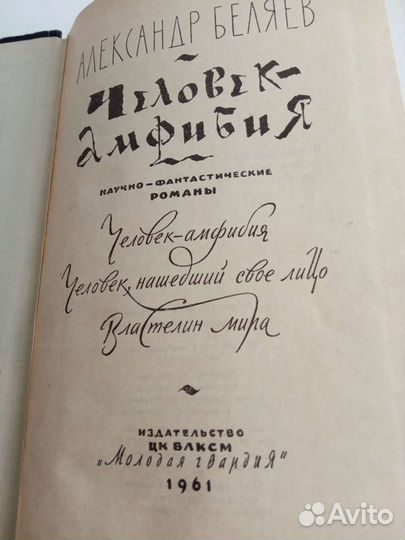 АЛЕКСАНДР БЕЛЯЕВ
ЧЕЛОВЕК-
АМФИБИЯ
НАУЧНО-ФАНТАСТИЧЕСКИЕ
РОМАНЫ
Человек-амфибия
Человек, нашедший свое лицо
Властелин мира
ИЗДАТЕЛЬСТВО
ЦК ВЛКСМ
„Молодая гвардия"
1961
Avito